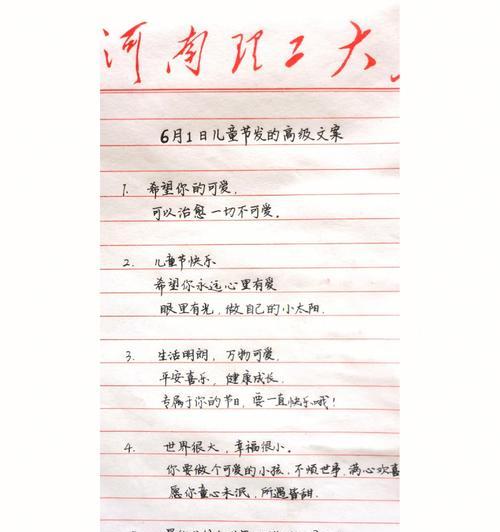 河南理工大
6月1日儿童节发的高级文案
1. 希望你的可爱,
可以治愈一切不可爱。
2. 儿童节快乐
希望你永远心里有爱
眼里有光,做自己的小太阳.
3. 生活明朗,万物可爱.
平安喜乐,健康成长.
专属于你的节日,要一直快乐哦!
4. 世界很大,幸福很小。
你要做个可爱的小孩,不烦世事,满心欢喜
愿你童心未泯,所遇皆甜.